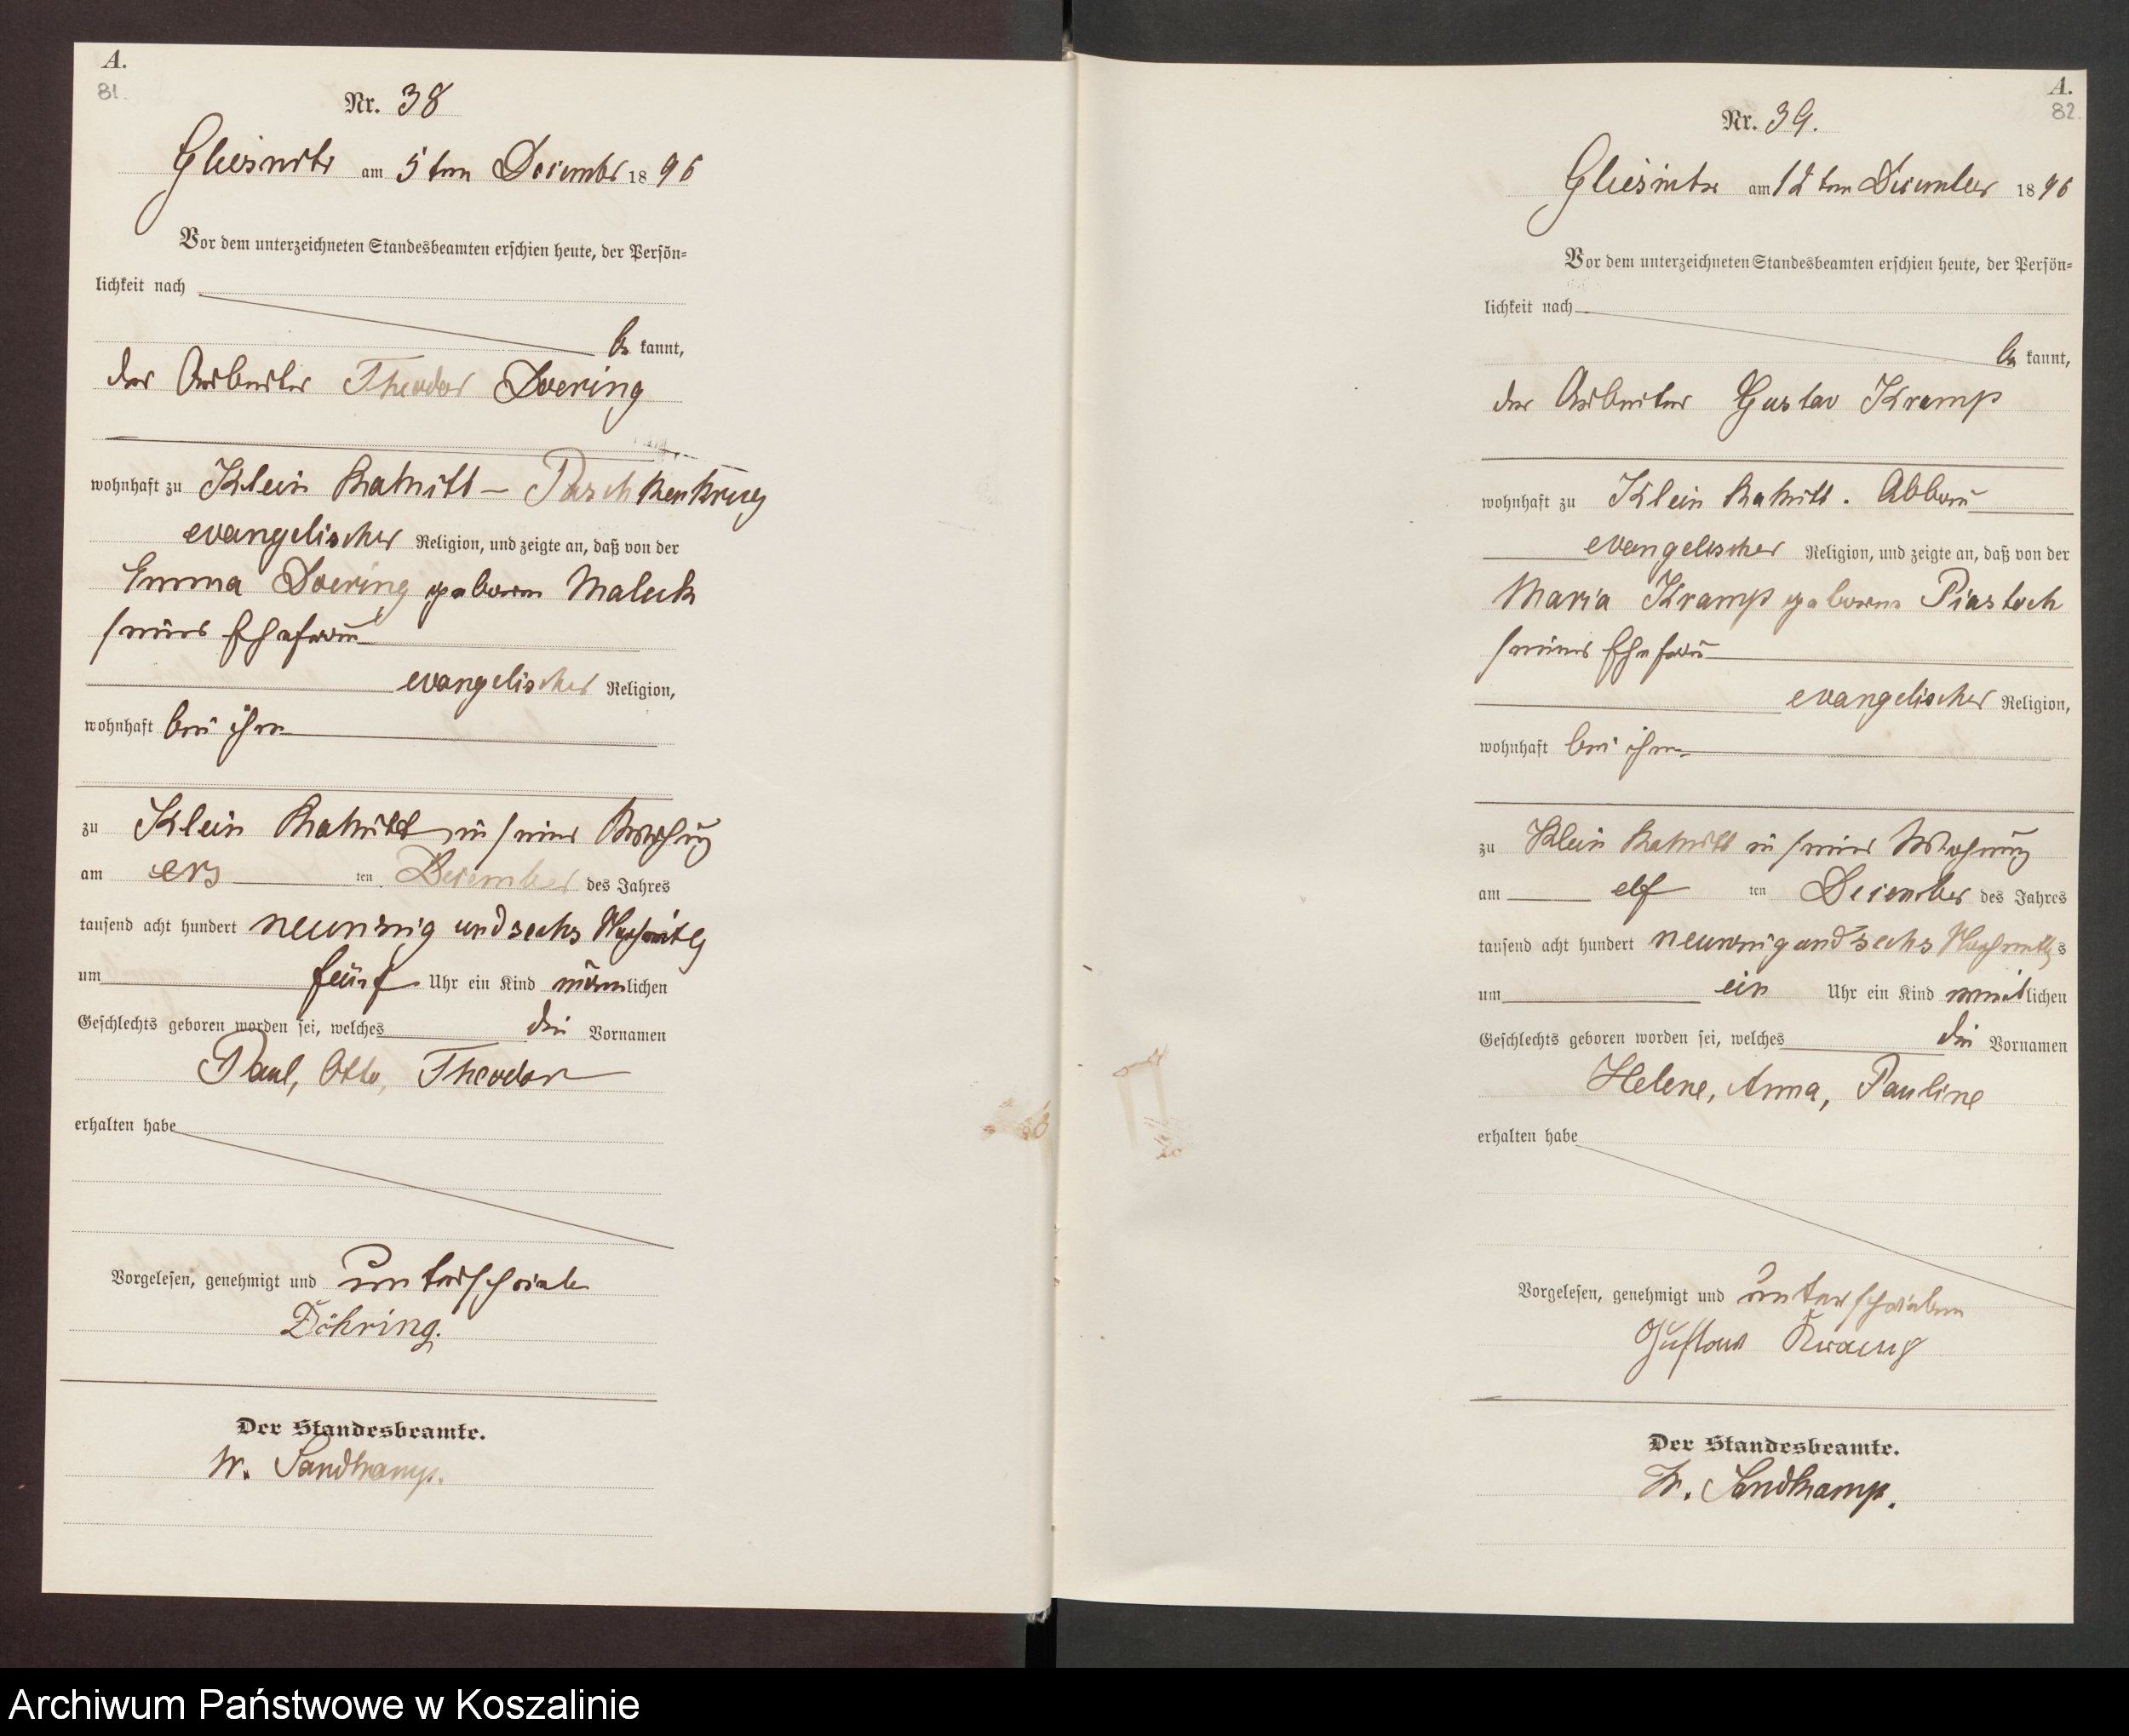 A.
81.
Nr. 38
Gliesnitz am 5ten December 1896
Vor dem unterzeichneten Standesbeamten erschien heute, der Persön=
lichkeit nach
be kannt,
der Arbeiter Theodor Doering
wohnhaft zu Klein Rakitt - Paschkenkrug
evangelischer Religion, und zeigte an, daß von der
Emma Doering geboren
seiner Ehefrau
evangelischer Religion,
wohnhaft bei ihm
zu Klein Rakitt in seiner Wohnung
am ers ten December des Jahres
tausend acht hundert neunzig und sechs Nachmittags
um fünf Uhr ein Kind männlichen
Geschlechts geboren worden sei, welches die Vornamen
Paul, Otto, Theodor
erhalten habe
Vorgelesen, genehmigt und unterschrieben
Döhring.
Der Standesbeamte.
W. Sandkamp.
A.
82.
Nr. 39.
Gliesnitz am 12ten December 1896
Vor dem unterzeichneten Standesbeamten erschien heute, der Persön=
lichkeit nach
be kannt,
der Arbeiter Gustav Kramp
wohnhaft zu Klein Rakitt. Abbau
evangelischer Religion, und zeigte an, daß von der
Maria Kramp geborne
seiner Ehefrau
evangelischer Religion,
wohnhaft bei ihm
zu Klein Rakitt in seiner Wohnung
am elf ten December des Jahres
tausend acht hundert neunzig und sechs Nachmittags
um ein Uhr ein Kind weiblichen
Geschlechts geboren worden sei, welches die Vornamen
Helene, Anna, Pauline
erhalten habe
Vorgelesen, genehmigt und unterschrieben
Gustav Kramp
Der Standesbeamte.
W. Sandkamp.
Archiwum Państwowe w Koszalinie